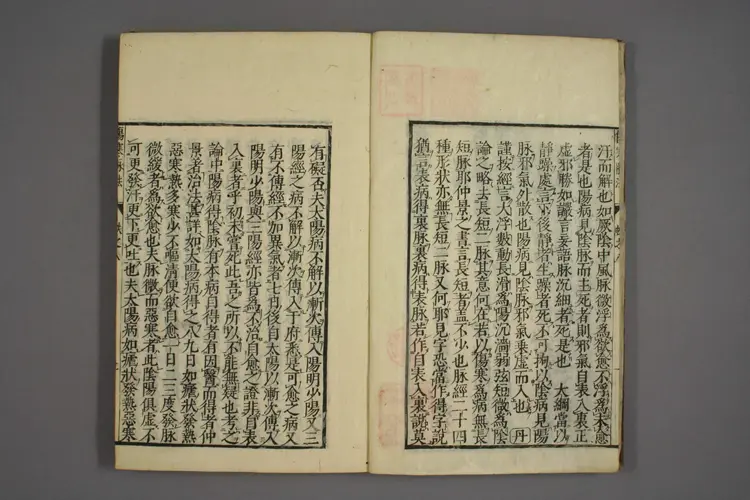 汗而解也如厥陰中風脉微浮爲欲愈不浮爲未愈
者是也陽病見陰脉而主死者則邪氣自表入裏正
虚邪勝如讝言妄語脉沉細者死是也　大綱當以
静躁處言
脉邪氣外散也陽病見陰脉邪氣乗虚而入也
謹按經言大浮數動長滑爲陽沉濇弱弦短微爲陰
論之略去長短二脉其意何在若以傷寒爲病無長
短脉耶仲景之書言長短者盖不少也脉經二十四
種形状亦無長短二脉又何耶見字恐當作得字說
猶言表病得裏脉裏病得表脉若作自表入裏說莫
有礙否夫太陽病不解以漸次傳入陽明少陽又三
陽經之病不解以漸次傳入于府悉是可愈之病又
有不傳經不加異氣者七日後自太陽以漸次傳入
陽明少陽與三陽經亦皆爲不治自愈之證非自表
入裏者乎初未嘗死此吾之所以不能無疑也考之
論中陽病得陰脉有本病自得者有因醫而得者仲
景者治法甚詳如太陽病得之八九日如瘧状發熱
惡寒熱多寒少不嘔清便欲自愈一日二三度發脉
微緩者爲欲愈也夫脉微而惡寒者此陰陽俱虚不
可更發汗更下更吐也夫太陽病如瘧状發熱惡寒